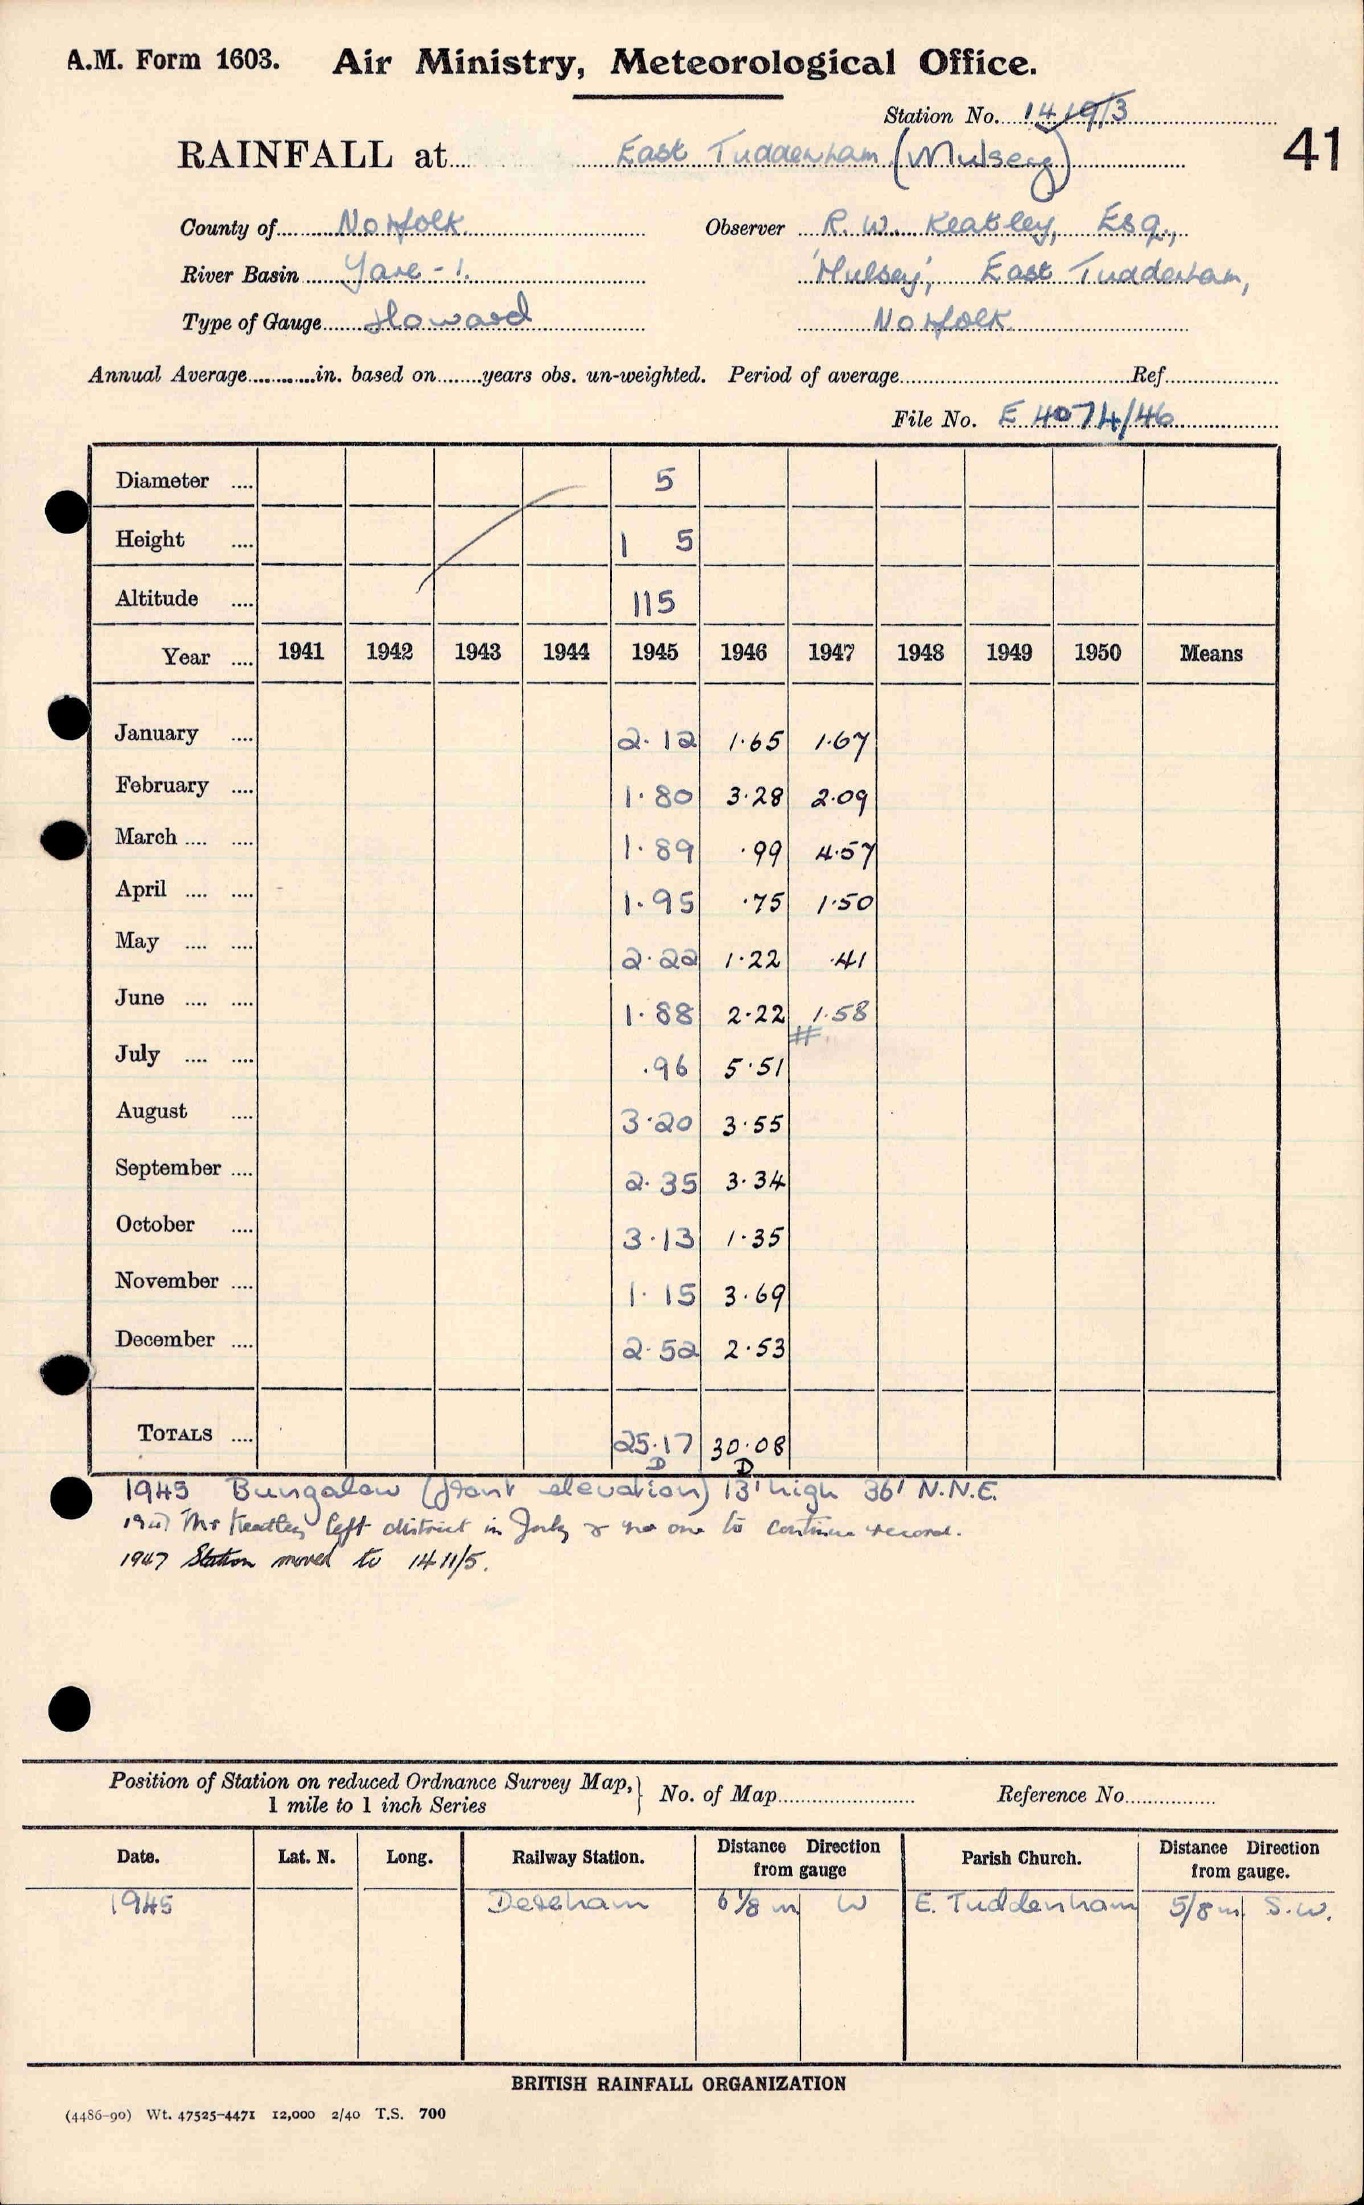 A.M. Form 1603. Air Ministry, Meteorological Office.
Station No. 1419/3
RAINFALL at East Tuddenham (Mulsey) 41
County of Norfolk Observer R. W. Keatley, Esq.,
River Basin Yare - 1. 'Mulsey', East Tuddenham,
Type of Gauge Howard Norfolk
Annual Average............in. based on........years obs. un-weighted. Period of average........ Ref........
File No. E 4074/46
Diameter .... 5
Height .... 1 5
Altitude .... 115
Year .... 1941 1942 1943 1944 1945 1946 1947 1948 1949 1950 Means
January .... 2.12 1.65 1.67
February .... 1.80 3.28 2.09
March .... .... 1.89 .99 4.57
April .... .... 1.95 .75 1.50
May .... .... 2.22 1.22 .41
June .... .... 1.88 2.22 1.58
#
July .... .... .96 5.51
August .... 3.20 3.55
September .... 2.35 3.34
October .... 3.13 1.35
November .... 1.15 3.69
December .... 2.52 2.53
TOTALS .... 25.17 30.08
D D
1945 Bungalow (front elevation) 13' high 36' N.N.E.
1947 Mr Keatley left district in July & no one to continue record.
1947 Station moved to 1411/5.
Position of Station on reduced Ordnance Survey Map, 1 mile to 1 inch Series } No. of Map........ Reference No........
Date. Lat. N. Long. Railway Station. Distance Direction from gauge Parish Church. Distance Direction from gauge.
1945 Dereham 6 1/8 m W E. Tuddenham 5/8 m S.W.
BRITISH RAINFALL ORGANIZATION
(4486-90) Wt. 47525-4471 12,000 2/40 T.S. 700